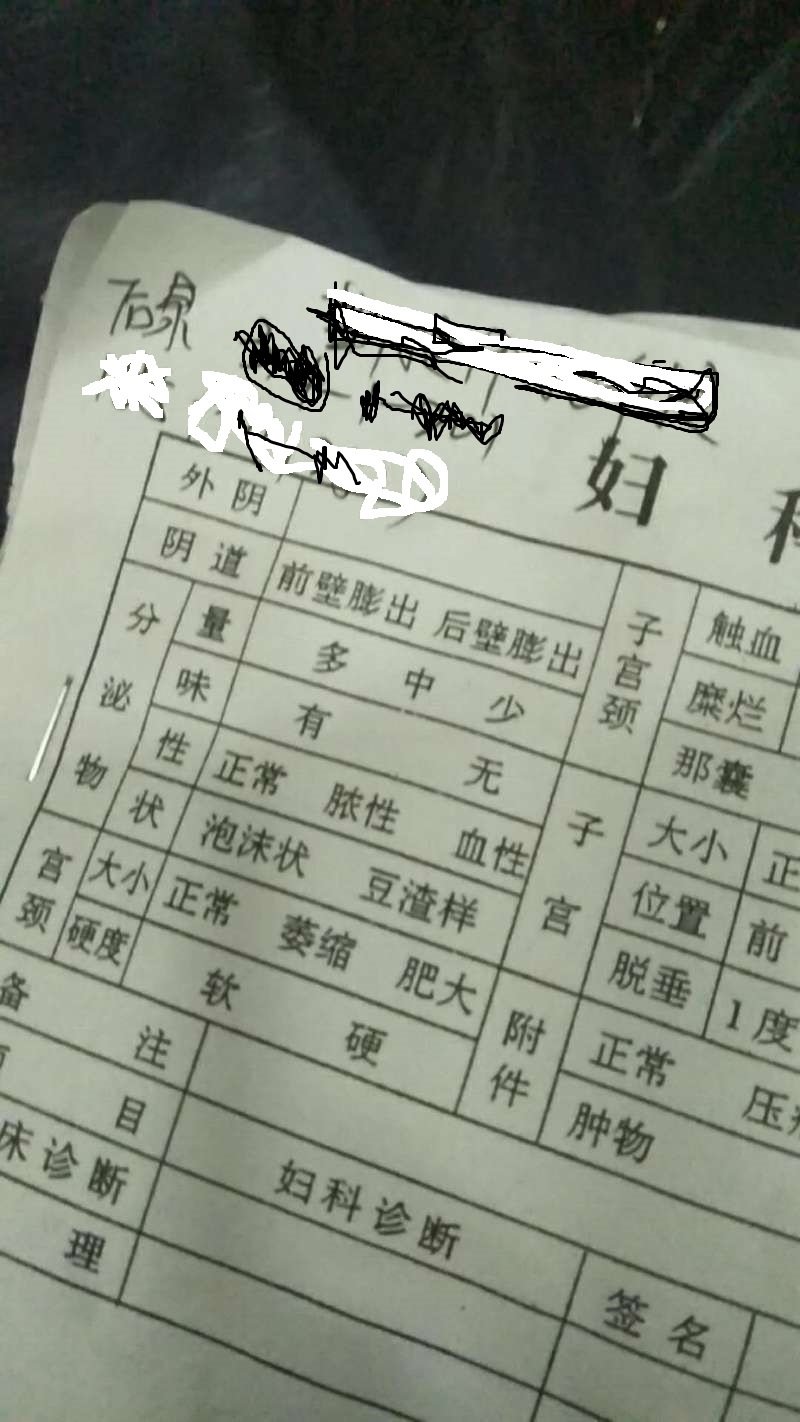 妇
外阴
阴道 前壁膨出 后壁膨出
分泌物 量 多 中 少
味 有 无
性状 正常 脓性 血性
泡沫状 豆渣样
宫颈 大小 正常 萎缩 肥大
硬度 软 硬
子宫颈 触血
糜烂
那囊
子宫 大小 正
位置 前
脱垂 1度
附件 正常 压
肿物
备注
目
床诊断 妇科诊断 签名
理